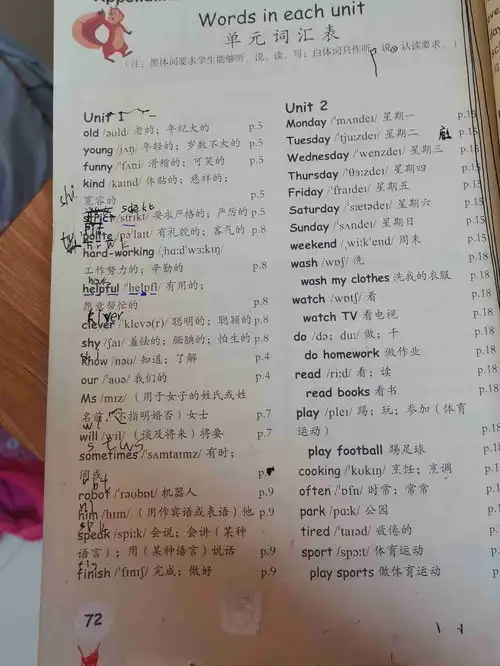 Words in each unit
单元词汇表
(注：黑体词要求学生能够听、说、读、写；白体词只作听、说、认读要求。)
Unit 1
old /əʊld/ 老的；年纪大的 p.5
young /jʌŋ/ 年轻的；岁数不大的 p.5
funny /ˈfʌni/ 滑稽的；可笑的 p.5
kind /kaɪnd/ 体贴的；慈祥的；
宽容的 p.5
strict /strɪkt/ 要求严格的；严厉的 p.5
polite /pəˈlaɪt/ 有礼貌的；客气的 p.8
hard-working /ˌhɑːdˈwɜːkɪŋ/
工作努力的；辛勤的 p.8
helpful /ˈhelpfl/ 有用的；
愿意帮忙的 p.8
klever
clever /ˈklevə(r)/ 聪明的；聪颖的 p.8
shy /ʃaɪ/ 羞怯的；腼腆的；怕生的 p.8
know /nəʊ/ 知道；了解 p.4
our /ˈaʊə/ 我们的 p.4
Ms /mɪz/ (用于女子的姓氏或姓
名前，不指明婚否) 女士 p.7
will /wɪl/ (谈及将来) 将要 p.7
sometimes /ˈsʌmtaɪmz/ 有时；
间或
robot /ˈrəʊbɒt/ 机器人 p.9
him /hɪm/ (用作宾语或表语) 他 p.9
speak /spiːk/ 会说；会讲 (某种
语言)；用 (某种语言) 说话 p.9
finish /ˈfɪnɪʃ/ 完成；做好 p.9
72
Unit 2
Monday /ˈmʌndeɪ/ 星期一 p.15
Tuesday /ˈtjuːzdeɪ/ 星期二 p.15
Wednesday /ˈwenzdeɪ/ 星期三 p.15
Thursday /ˈθɜːzdeɪ/ 星期四 p.15
Friday /ˈfraɪdeɪ/ 星期五 p.15
Saturday /ˈsætədeɪ/ 星期六 p.15
Sunday /ˈsʌndeɪ/ 星期日 p.15
weekend /ˌwiːkˈend/ 周末 p.15
wash /wɒʃ/ 洗 p.18
wash my clothes 洗我的衣服 p.18
watch /wɒtʃ/ 看 p.18
watch TV 看电视 p.18
do /də; duː/ 做；干 p.18
do homework 做作业 p.18
read /riːd/ 看；读 p.18
read books 看书 p.18
play /pleɪ/ 踢；玩；参加 (体育
运动) p.18
play football 踢足球 p.18
cooking /ˈkʊkɪŋ/ 烹饪；烹调 p.
often /ˈɒfn/ 时常；常常 p.
park /pɑːk/ 公园 p.
tired /ˈtaɪəd/ 疲倦的 p.
sport /spɔːt/ 体育运动 p.
play sports 做体育运动 p.